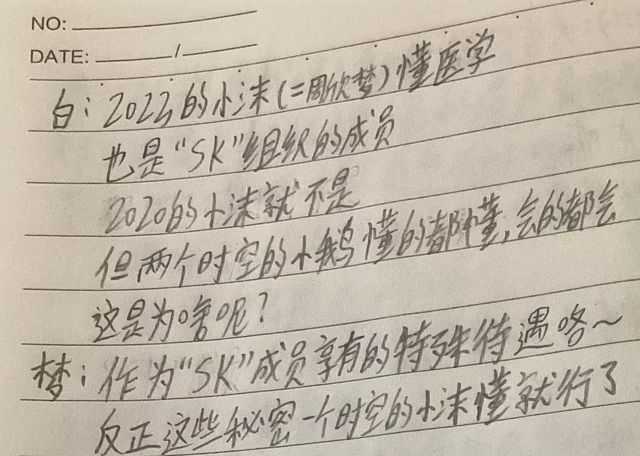 NO:
DATE: /
白：2023的小沫(=周欣梦)懂医学
也是"SK"组织的成员
2020的小沫就不是
但两个时空的小鹅懂的都懂,会的都会
这是为啥呢?
梦：作为"SK"成员享有的特殊待遇咯~
反正这些秘密一个时空的小沫懂就行了